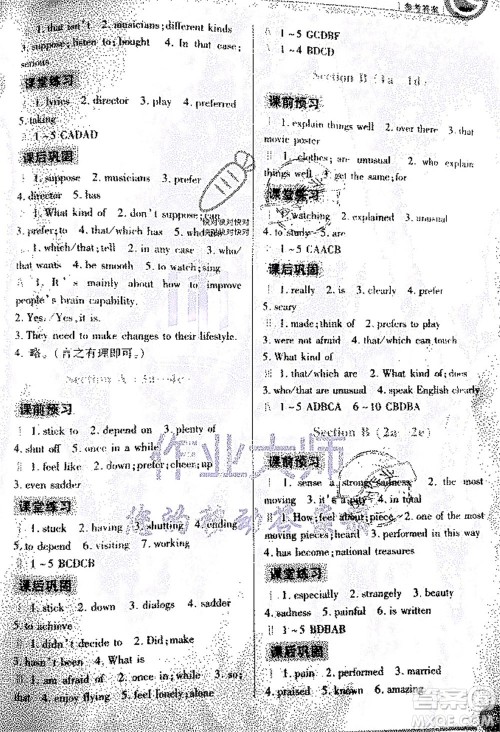 参考答案
1. that isn't 2. musicians; different kinds
3. suppose; listen to; bought 4. In that case;
serious
课堂练习
1. lyrics 2. director 3. play 4. preferred
5. taking
1~5 CADAD
课后巩固
1. suppose 2. musicians 3. prefer
4. director 5. has
1. What kind of 2. don't suppose; can
3. prefer; to 4. that/which has 5. who are
1. which/that; tell 2. doesn't; either 3. who/
that wants 4. be smooth 5. to watch; to sing
1. It's mainly about how to improve
people's brain capability.
2. Yes./Yes, it is.
3. They need to make changes to their lifestyle.
4. 略。(言之有理即可。)
Section A (3a—4c)
课前预习
1. stick to 2. depend on 3. plenty of
4. shut off 5. once in a while
1. feel like 2. down; prefer; cheer; up
3. even sadder
课堂练习
1. stuck 2. having 3. shutting 4. ending
5. to depend 6. visiting 7. working
1~5 BCDCB
课后巩固
1. stick 2. down 3. dialogs 4. sadder
5. to achieve
1. didn't decide to 2. Did; make
3. hasn't been 4. What is
1. am afraid of 2. once in a while 3. so;
that 4. enjoy flying 5. feel lonely; alone
1~5 GCDBF
1~4 BDCD
Section B (1a—1d)
课前预习
1. explain things well 2. over there 3. that
movie poster
1. clothes; are unusual 2. who; explain
things well 3. get the same; for
课堂练习
1. watching 2. explained 3. unusual
4. to study 5. are
1~5 CAACB
课后巩固
1. really 2. is 3. clothes 4. is
5. scary
1. who/that is 2. over there; is
3. were not afraid 4. that/which can touch
5. What kind of
1. who/that are 2. What kind of; does
3. who/that are unusual 4. speak English clearly
1~5 ADBCA 6~10 CBDBA
Section B (2a—2e)
课前预习
1. sense a strong sadness 2. the most
moving 3. it's a pity 4. in total
1. How; feel about; piece 2. one of the most
moving pieces; heard 3. performed in this way
4. has become; national treasures
课堂练习
1. especially 2. strangely 3. beauty
4. sadness 5. painful 6. is written
1~5 BDBAB
课后巩固
1. pain 2. performed 3. married
4. praised 5. known 6. amazing
快对快对快对快对
作业大师
答案圈
MXQE.COM